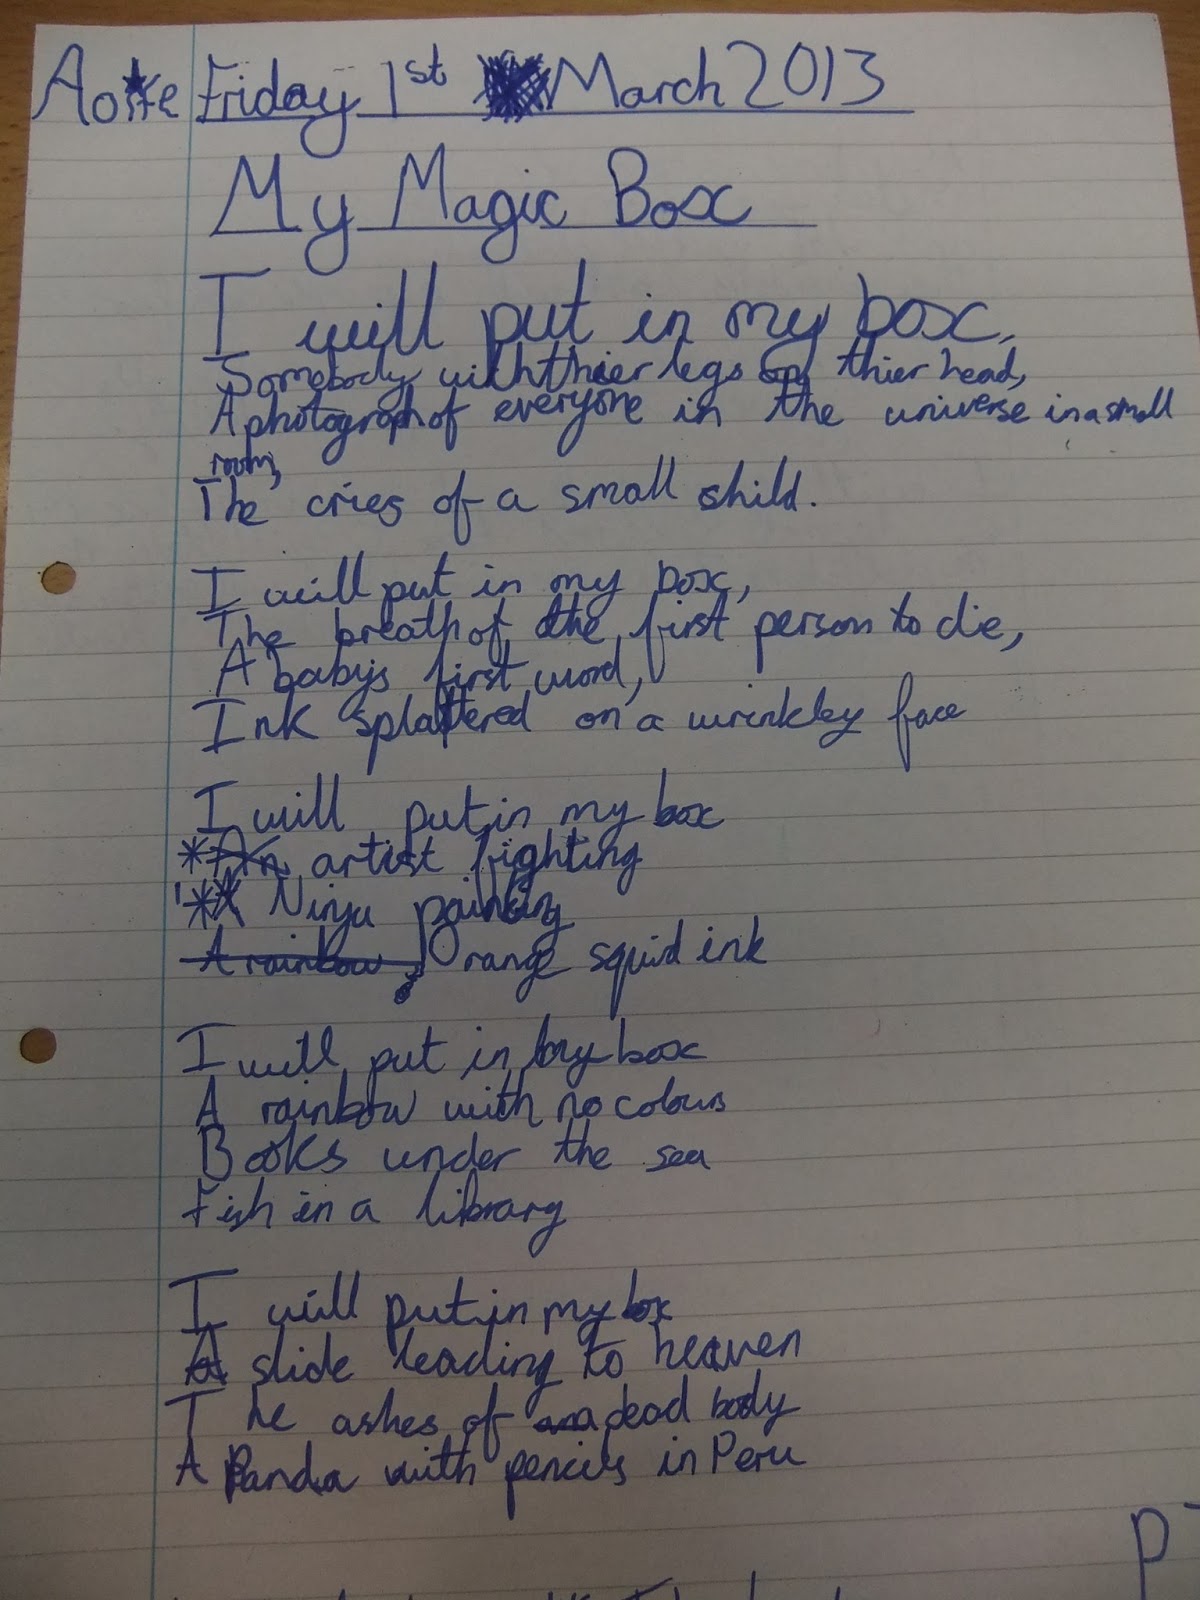 Aoife Friday 1st March 2013
My Magic Box
I will put in my box,
Somebody with thier legs on thier head,
A photograph of everyone in the universe in a small
room,
The cries of a small shild.
I will put in my box,
The breath of the first person to die,
A baby's first word,
Ink splattered on a wrinkley face
I will put in my box
*An artist fighting
** Ninja painting
A rainbow Orange squid ink
I will put in my box
A rainbow with no colours
Books under the sea
Fish in a library
I will put in my box
A slide leading to heaven
The ashes of a dead body
A Panda with pencils in Peru
P